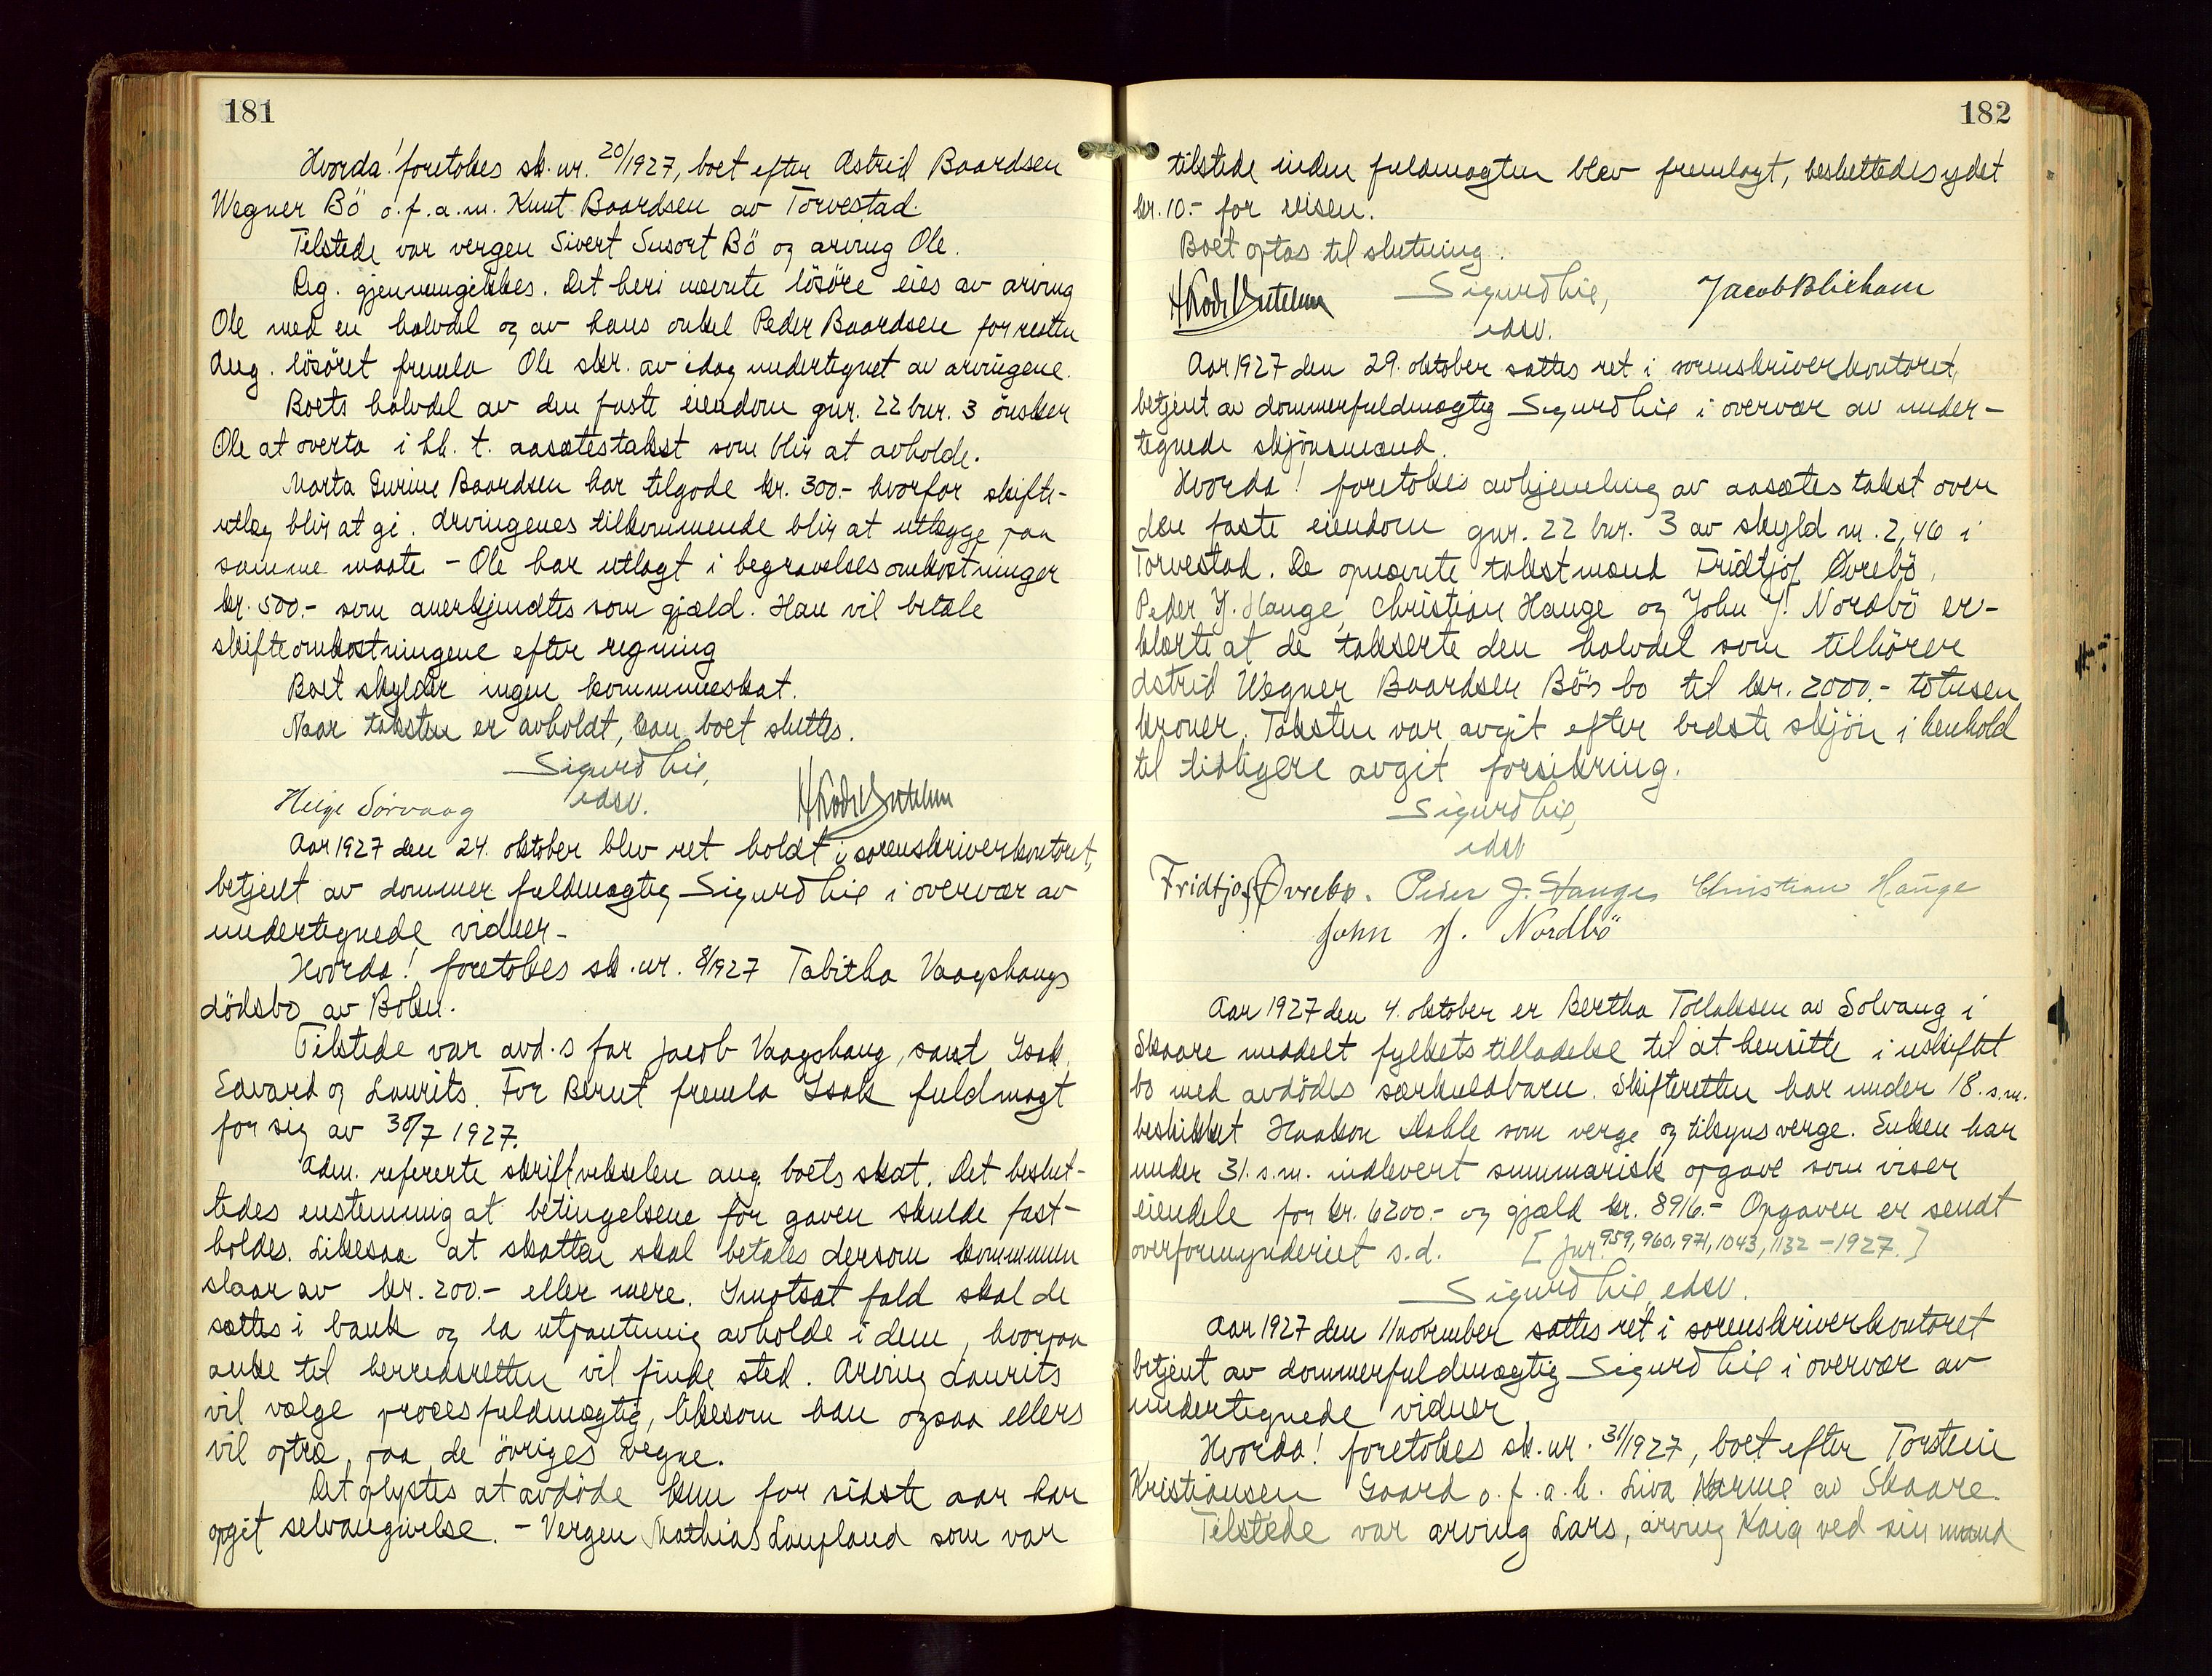 181
Hvorda! foretokes sk. nr. 20/1927, boet efter Astrid Baardsen
Wegner Bö o.f.a.m. Knut Baardsen av Torvestad.
Tilstede var vergen Sivert Susort Bö og arving Ole.
Reg. gjennemgikkes. Det heri nævnte lösöre eies av arving
Ole med en halvdel og av hans onkel Peder Baardsen for resten
Ang. lösöret fremla Ole skr. av idag undertegnet av arvingene.
Boets halvdel av den faste eiendom gnr. 22 bnr. 3 önsker
Ole at overta i hh. t. aasætestakst som blir at avholde.
Marta Gurine Baardsen har tilgode kr. 300.- hvorfor skifte-
utlæg blir at gi. Arvingenes tilkommende blir at utlægge paa
samme maate. - Ole har utlagt i begravelsesomkostninger
kr. 500.- som anerkjendtes som gjæld. Han vil betale
skifteomkostningene efter regning
Boet skylder ingen kommuneskat.
Naar taksten er avholdt, kan boet sluttes.
Sigurd Lie,
edsv.
Helge Sörvaag
Aar 1927 den 24. oktober blev ret holdt i sorenskriverkontoret,
betjent av dommerfuldmægtig Sigurd Lie i overvær av
undertegnede vidner -
Hvorda! foretokes sk. nr. 8/1927 Tabitha Vaagshaugs
dödsbo av Boken.
Tilstede var avd.s far Jacob Vaagshaug, samt Isak,
Edvard og Laurits. For Bernt fremla Isak fuldmagt
for sig av 30/7 1927.
Adm. refererte skriftvekselen ang. boets skat. Det beslut-
tedes enstemmig at betingelsene for gaven skulde fast-
holdes. Likesaa at skatten skal betales dersom kommunen
slaar av kr. 200.- eller mere. I motsat fald skal de
sættes i bank og la utpantning avholde i dem, hvorpaa
anke til herredsretten vil finde sted. Arving Laurits
vil vælge procesfuldmægtig, likesom han ogsaa ellers
vil optræ paa de övriges vegne.
Det oplystes at avdöde kun for sidste aar har
opgit selvangivelse. - Vergen Mathias Laupland som var
182
tilstede inden fuldmagten blev fremlagt, besluttedes ydet
kr. 10.- for reisen.
Boet optas til slutning.
Sigurd Lie,
edsv.
Aar 1927 den 29. oktober sattes ret i sorenskriverkontoret,
betjent av dommerfuldmægtig Sigurd Lie i overvær av under-
tegnede skjönsmænd.
Hvorda! foretokes avhjemling av aasætes takst over
den faste eiendom gnr. 22 bnr. 3 av skyld m. 2,46 i
Torvestad. De opnævnte takstmænd Fridtjof Øvrebö,
Peder J. Hauge, Christian Hauge og John J. Nordbö er-
klærte at de takserte den halvdel som tilhörer
Astrid Wegner Baardsen Bö's bo til kr. 2000.- totusen
kroner. Taksten var avgit efter bedste skjön i henhold
til tidligere avgit forsikring.
Sigurd Lie,
edsv
Fridtjof Øvrebø. Peder J. Hauge, Christian Hauge
John J. Nordbö
Aar 1927 den 4. oktober er Bertha Tollaksen av Solvang i
Skaare meddelt fylkets tilladelse til at hensitte i uskiftet
bo med avdödes særkuldbarn. Skifteretten har under 18. s.m.
beskikket Haakon Stahle som verge og tilsynsverge. Enken har
under 31. s.m. indlevert summarisk opgave som viser
eiendele for kr. 6200.- og gjæld kr. 8916.- Opgaven er sendt
overformynderiet s.d. [Jnr. 959, 960, 971, 1043, 1132 - 1927.]
Sigurd Lie, edsv.
Aar 1927 den 11 november sattes ret i sorenskriverkontoret
betjent av dommerfuldmægtig Sigurd Lie i overvær av
undertegnede vidner,
Hvorda! foretokes sk. nr. 31/1927, boet efter Torstein
Kristiansen Gaard o.f.a.h. Liva Karine av Skaare.
Tilstede var arving Lars, arving Kaia ved sin mand